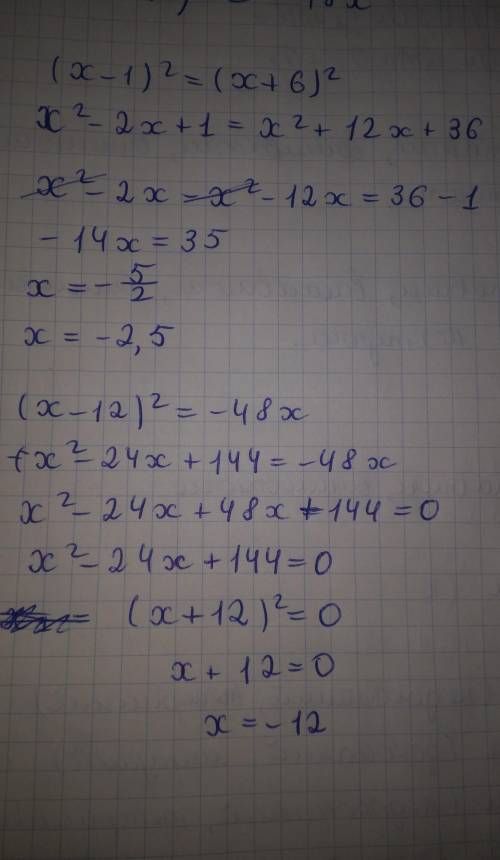 (x-1)² = (x+6)²
x² - 2x + 1 = x² + 12x + 36
x² - 2x = x² - 12x = 36 - 1
- 14x = 35
x = - 5/2
x = -2,5
(x-12)² = -48x
x² - 24x + 144 = -48x
x² - 24x + 48x + 144 = 0
x² - 24x + 144 = 0
= (x+12)² = 0
x + 12 = 0
x = -12